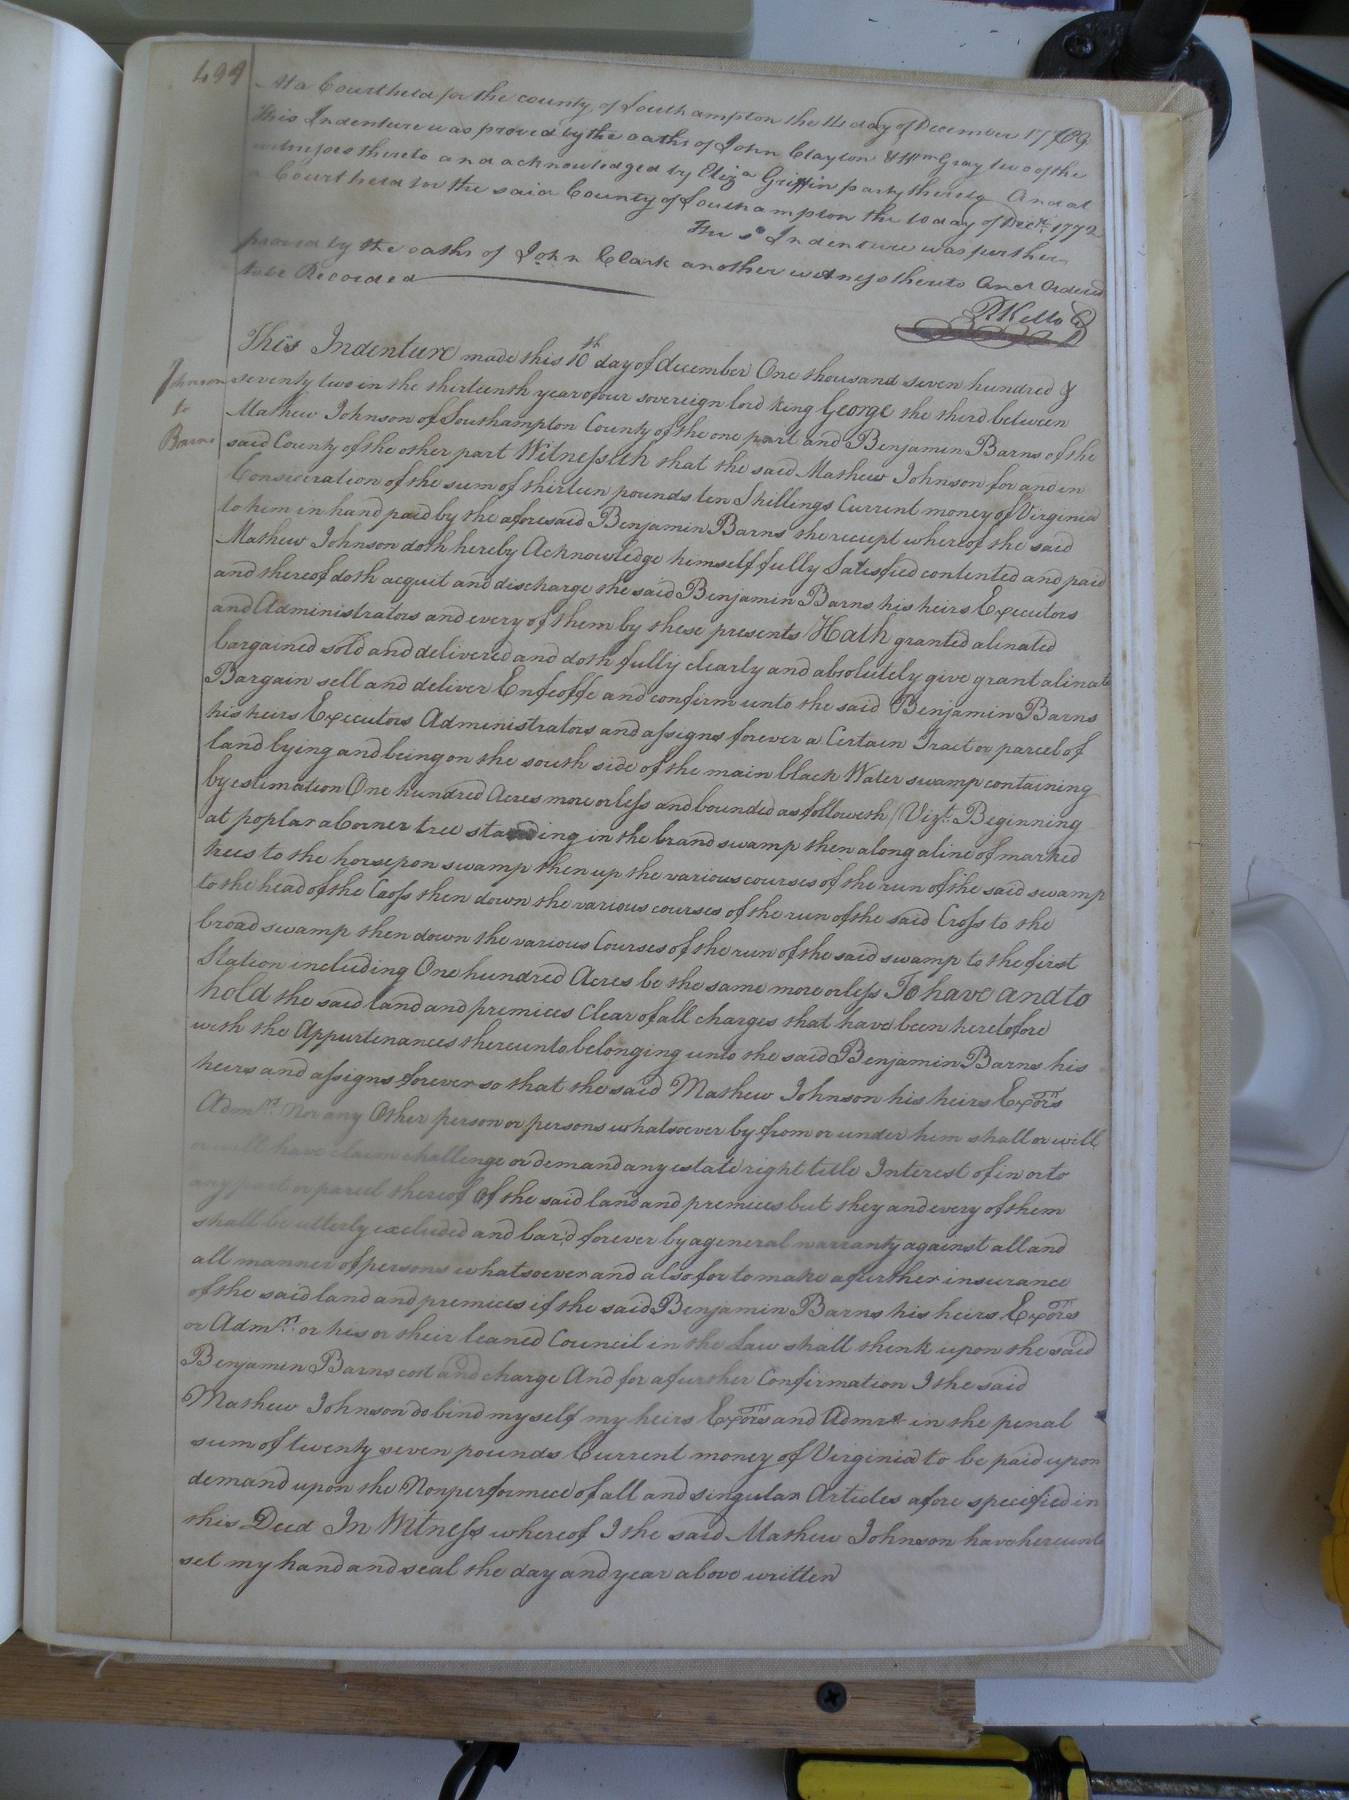 499
At a Court held for the county of Southampton the 14 day of December 1769
This Indenture was proved by the oaths of John Clayton & Wm Gray two of the
witnesses thereto and acknowledged by Eliza Griffin party thereto And at
a Court held for the said County of Southampton the 10 day of Decr. 1772
The sd Indenture was further
proved by the oaths of John Clark another witness thereto And Ordered
to be Recorded
R Kello C
Johnson
to
Barns
This Indenture made this 10th day of december One thousand seven hundred &
seventy two in the thirteenth year of our sovereign lord king George the third between
Mathew Johnson of Southampton County of the one part and Benjamin Barns of the
said County of the other part Witnesseth that the said Mathew Johnson for and in
Consideration of the sum of thirteen pounds ten Shillings Current money of Virginia
to him in hand paid by the aforesaid Benjamin Barns the receipt whereof the said
Mathew Johnson doth hereby Acknowledge himself fully Satisfied contented and paid
and thereof doth acquit and discharge the said Benjamin Barns his heirs Executors
and Administrators and every of them by these presents Hath granted alinated
bargained sold and delivered and doth fully clearly and absolutely give grant alinate
Bargain sell and deliver Enfeoffe and confirm unto the said Benjamin Barns
his heirs Executors Administrators and assigns forever a Certain Tract or parcel of
land lying and being on the south side of the main black Water swamp containing
by estimation One hundred Acres more or less and bounded as followeth (Vizt. Beginning
at poplar a Corner tree standing in the brand swamp then along a line of marked
trees to the horsepon swamp then up the various courses of the run of the said swamp
to the head of the Cross then down the various courses of the run of the said Cross to the
broad swamp then down the various Courses of the run of the said swamp to the first
Station including One hundred Acres be the same more or less To have and to
hold the said land and premices Clear of all charges that have been heretofore
with the Appurtenances thereunto belonging unto the said Benjamin Barns his
heirs and assigns forever so that the said Mathew Johnson his heirs Exors
Admrs. Nor any Other person or persons whatsoever by from or under him shall or will
or will have claim challenge or demand any estate right title Interest of in or to
any part or parcel thereof of the said land and premices but they and every of them
shall be utterly excluded and bard forever by a general warranty against all and
all manner of persons whatsoever and also for to make a further insurance
of the said land and premices if the said Benjamin Barns his heirs Exors
or Admrs. or his or their leaned Council in the Law shall think upon the said
Benjamin Barns cost and charge And for a further Confirmation I the said
Mathew Johnson do bind myself my heirs Exors and Admrs in the penal
sum of twenty seven pounds Current money of Virginia to be paid upon
demand upon the Nonperformece of all and singular Articles afore specified in
this Deed In Witness whereof I the said Mathew Johnson have hereunto
set my hand and seal the day and year above written